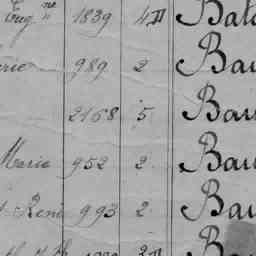 Eug.ne 1839 4D Bat
rie 989 2 Bau
2168 5 Bau
Marie 952 2 Bau
René 993 2 Bau